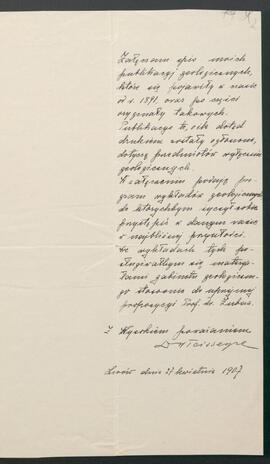 Załączam spis moich
publikacyj geologicznych,
które się pojawiły w
od r. 1891, oraz po części
oryginały takowych.
Publikacye te, które dotąd
drukiem zostały ogłoszone,
dotyczą przedmiotów wyłącznie
geologicznych.
W załączeniu podaję pro-
gram wykładów geologicznych
do których
przystąpić w danym razie
w najbliższej przyszłości.
We wykładach tych po-
sługiwałbym się materya-
łami gabinetu geologicznego
stosownie do uprzejmej
propozycyi Prof. Dr.
Z Wysokiem poważaniem
Dr W Teisseyre
Lwów dnia 27 kwietnia 1907